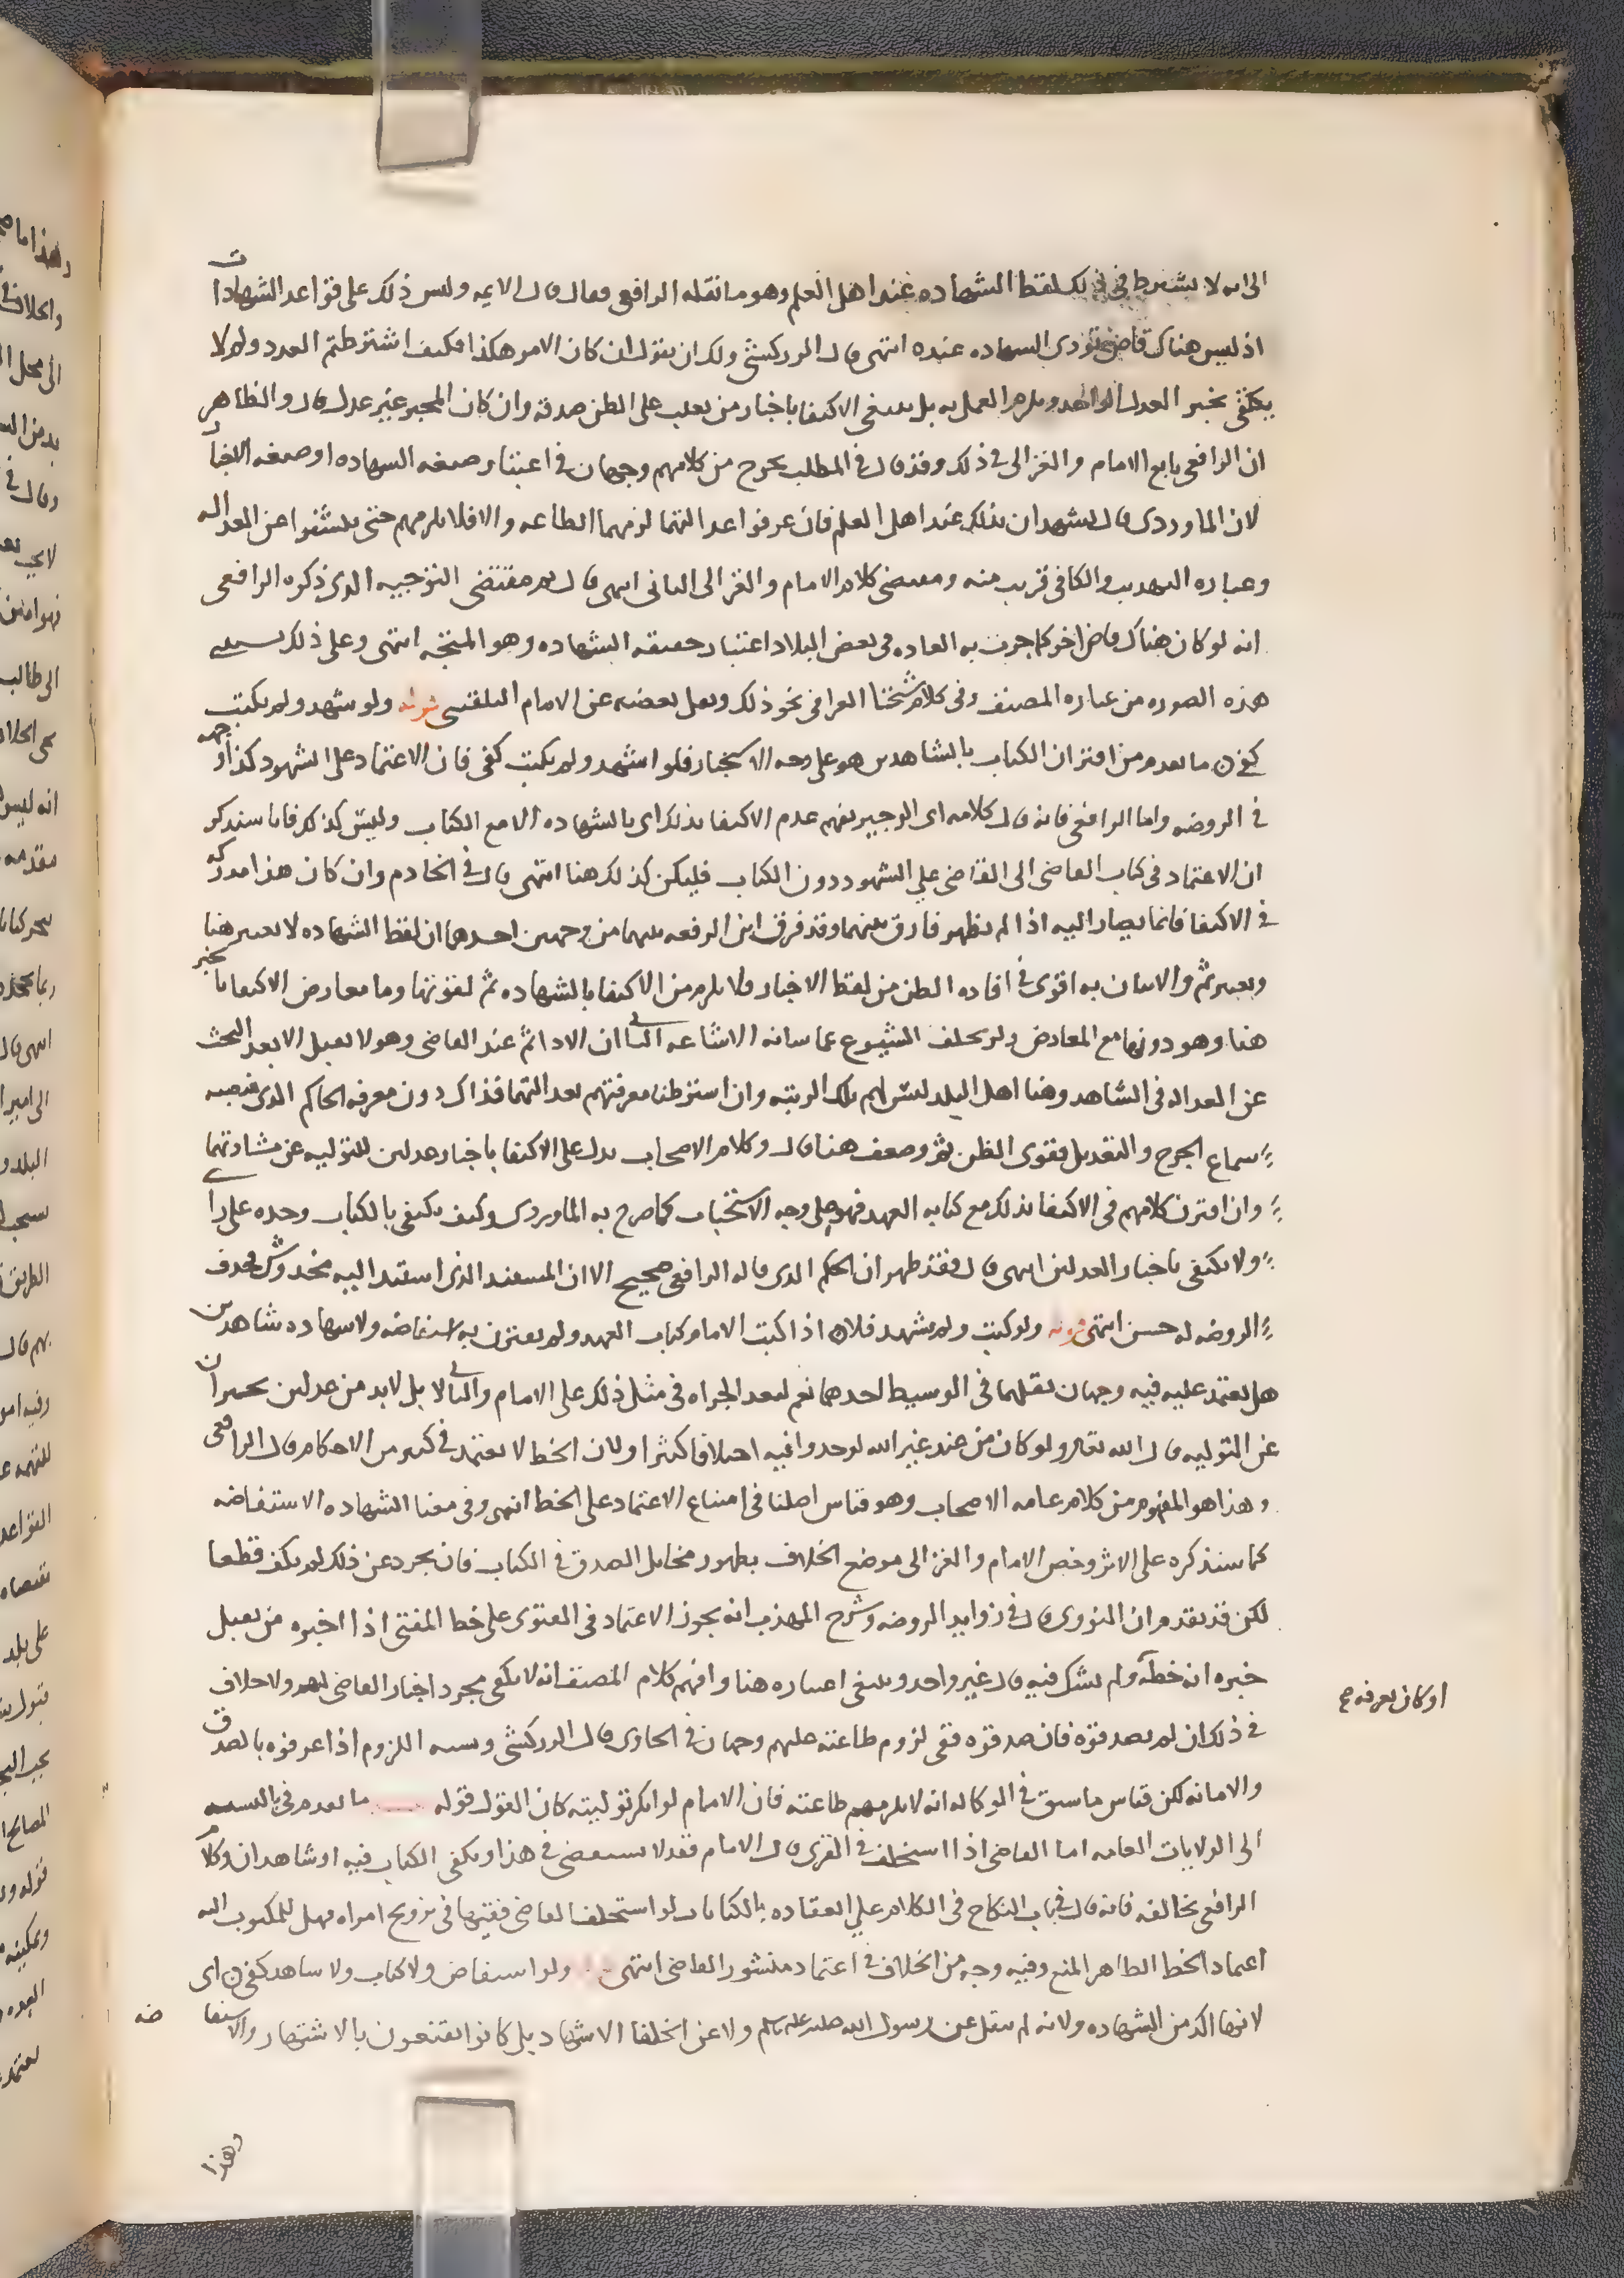 الى انه لا يشترط في ذلك لفظ الشهاده عند اهل العلم وهو ما نقله الرافعي فقال قال الايمه وليس ذلك على قواعد الشهادات
اذ ليس هناك قاض تودى الشهاده عنده انتهى قال الزركشي ولك ان تقول ان كان الامر هكذا فكيف اشترطتم العدد ولم لا
يكتفي بخبر العدل الواحد ويلزم العمل به بل ينبغي الاكتفا باخبار من يغلب على الظن صدقه وان كان المخبر غير عدل قال والظاهر
ان الرافعي تابع الامام والغزالى في ذلك وقد قال في المطلب يخرج من كلامهم وجهان في اعتبار صيغه الشهاده او صيغه الاخبار
لان الماوردى قال يشهدان بذلك عند اهل العلم فان عرفوا عدالتهما لزمهما الطاعه والا فلا يلزمهم حتى يكشفوا عن العداله
وعباره التهذيب والكافي قريب منه ومقتضى كلام الامام والغزالى الثاني انتهى قال نعم مقتضى التوجيه الذى ذكره الرافعي
انه لو كان هناك قاض اخر كما جرت به العاده في بعض البلاد اعتبار حقيقه الشهاده وهو المتجه انتهى وعلى ذلك
هذه الصوره من عباره المصنف وفي كلام شيخنا العراقي نحو ذلك ونقل بعضه عن الامام البلقيني قوله ولو شهد ولم يكتب
كفى ن ما تقدم من اقتران الكتاب بالشاهدين هو على وجه الاستحباب فلو اشهد ولم يكتب كفى فان الاعتماد على الشهود كذا وجهه
في الروضه واما الرافعي فانه قال كلامه اى الوجيز يفهم عدم الاكتفا بذلك اى بالشهاده الا مع الكتاب وليس كذلك فانا سنذكر
ان الاعتماد في كتاب القاضى الى القاضى علي الشهود دون الكتاب فليكن كذلك هنا انتهى قال في الخادم وان كان هذا مدركه
في الاكتفا فانما يصار اليه اذا لم يظهر فارق بينهما وقد فرق ابن الرفعه بينهما من وجهين احدهما ان لفظ الشهاده لا يعتبر هنا
ويعتبر ثم والاتيان به اقوى في افاده الظن من لفظ الاخبار فلا يلزم من الاكتفا بالشهاده ثم لقوتها وما معارض الاكتفا بالخبر
هنا وهو دونها مع المعارض ولم يخلف الشيوع عما شانه الاشاعه الثاني ان الادا ثم عند القاضى وهو لا يقبل الا بعد البحث
عن العداله في الشاهد وهنا اهل البلد ليس لهم تلك الرتبه وان اشترطنا معرفتهم بعدالتهما فذاك دون معرفه الحاكم الذى نصبه
سماع الجرح والتعديل فقوى الظن ثم وضعف هنا قال وكلام الاصحاب يدل على الاكتفا باخبار عدلين للتوليه عن مشاورتهما
وان اقترن كلامهم في الاكتفا بذلك مع كتابه العهد فهو على وجه الاستحباب كما صرح به الماوردى وكيف يكتفي بالكتاب وحده على راى
ولا يكتفي باخبار العدلين انتهى قال وقد ظهر ان الحكم الذى قاله الرافعي صحيح الا ان المستند الذى استند اليه مخدوش فحذف
الروضه له حسن انتهى قوله ولو كتب ولم يشهد فلا ن اذا كتب الامام كتاب العهد ولم يقترن به استفاضه ولا شهاده شاهدين
هل يعتمد عليه فيه وجهان نقلهما في الوسيط احدهما نعم لبعد الجراه في مثل ذلك على الامام والثاني لا بل لابد من عدلين يخبران
عن التوليه قال الله تعالى ولو كان من عند غير الله لوجدوا فيه اختلافا كثيرا ولان الخط لا يعتمد في كثير من الاحكام قال الرافعي
وهذا هو المفهوم من كلام عامه الاصحاب وهو قياس اصلنا في امتناع الاعتماد على الخط انتهى وفي معنا الشهاده الاستفاضه
كما سنذكره على الاثر وخص الامام والغزالى موضع الخلاف بظهور مخايل الصدق في الكتاب فان تجرد عن ذلك لم يكف قطعا
لكن قد تقدم ان النووى قال في زوايد الروضه وشرح المهذب انه يجوز الاعتماد في الفتوى على خط المفتى اذا اخبره من يقبل
خبره انه خطه ولم يشك فيه قال غير واحد وينبغي اعتباره هنا وافهم كلام المصنف انه لا يكفى مجرد اخبار القاضى لهم ولا خلاف
او كان يعرفه صح
في ذلك ان لم يصدقوه فان صدقوه ففى لزوم طاعته عليهم وجهان في الحاوى قال الزركشي ويشبه اللزوم اذا عرفوه بالصدق
والامانه لكن قياس ما سبق في الوكاله انه لا يلزمهم طاعته فان الامام لو انكر توليته كان القول قوله ما تقدم في بالنسبه
الى الولايات العامه اما القاضى اذا استخلف في القرى قال الامام فقد لا يستقصى في هذا ويكفى الكتاب فيه او شاهدان وكلام
الرافعي يخالفه فانه قال في باب النكاح في الكلام علي انعقاده بالكتابات لو استخلف القاضى فقيها في تزويج امراه فهل للمكتوب اليه
اعتماد الخط الظاهر المنع وفيه وجه من الخلاف في اعتماد منشور القاضى انتهى ولو استفاض ولا كتاب ولا شاهد كفى ن اى
لانها اكد من الشهاده ولانه لم ينقل عن رسول الله صلى الله عليه وسلم ولا عن الخلفا الاشهاد بل كانوا يقنعون بالاشتهار والاستفاضه
وهذا